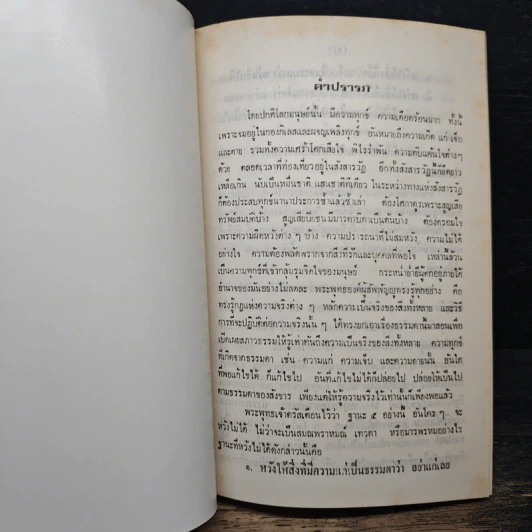 คำปรารภ
โดยปกติโลกมนุษย์นั้น มีความทุกข์ ความเดือดร้อนมาก ทั้งนี้
เพราะจมอยู่ในกองกิเลสและผจญเพลิงทุกข์ อันหมายถึงความเกิด แก่ เจ็บ
และตาย รวมทั้งความเศร้าโศกเสียใจ พิไรรำพัน ความคับแค้นใจต่างๆ
ด้วย ตลอดเวลาที่ท่องเที่ยวอยู่ในสังสารวัฏ อีกทั้งสังสารวัฏนี้ก็ยืดยาว
เหลือเกิน นับเป็นหมื่นชาติ แสนชาติทีเดียว ในระหว่างทางแห่งสังสารวัฏ
ก็ต้องประสบทุกข์นานาประการซ้ำแล้วซ้ำเล่า ต้องโศกาดูรเพราะสูญเสีย
ทรัพย์สมบัติบ้าง สูญเสียปิยชนมีมารดาบิดาเป็นต้นบ้าง ต้องตรอมใจ
เพราะความผิดหวังต่าง ๆ บ้าง ความปรารถนาที่ไม่สมหวัง ความไม่ได้
อย่างใจ ความต้องพลัดพรากจากสิ่งที่รักและบุคคลที่พอใจ เหล่านี้ล้วน
เป็นความทุกข์ที่เข้ากลุ้มรุมจิตใจของมนุษย์ กระหน่ำย่ำยีผู้ตกอยู่ภายใต้
อำนาจของมันอย่างไม่ลดละ พระพุทธองค์ผู้สัพพัญญูทรงรู้ทุกอย่าง คือ
ทรงรู้กฎแห่งความจริงต่าง ๆ หลักความจริงเป็นของสิ่งทั้งหลาย และวิธี
การที่จะปฏิบัติต่อความจริงนั้น ๆ ได้ทรงยกเอาเรื่องธรรมดานี้มาสอนเพื่อ
เปิดเผยสภาวธรรมให้รู้เท่าทันถึงความเป็นจริงของสิ่งทั้งหลาย ความทุกข์
ที่เกิดจากธรรมดา เช่น ความแก่ ความเจ็บ และความตายนั้น อันใด
ที่พอแก้ไขได้ ก็แก้ไขไป อันที่แก้ไขไม่ได้ก็ปล่อยไป ปล่อยให้เป็นไป
ตามธรรมดาของสังขาร เพียงแต่ให้รู้ความจริงไว้เท่านั้นก็เพียงพอแล้ว
พระพุทธเจ้าตรัสเตือนไว้ว่า ฐานะ ๕ อย่างนี้ อันใคร ๆ จะ
หวังไม่ได้ ไม่ว่าจะเป็นสมณพราหมณ์ เทวดา หรือมารพรหมอย่างไร
ฐานะที่หวังไม่ได้ดังกล่าวนั้นคือ
๑. หวังให้สิ่งที่มีความแก่เป็นธรรมดาว่า อย่าแก่เลย